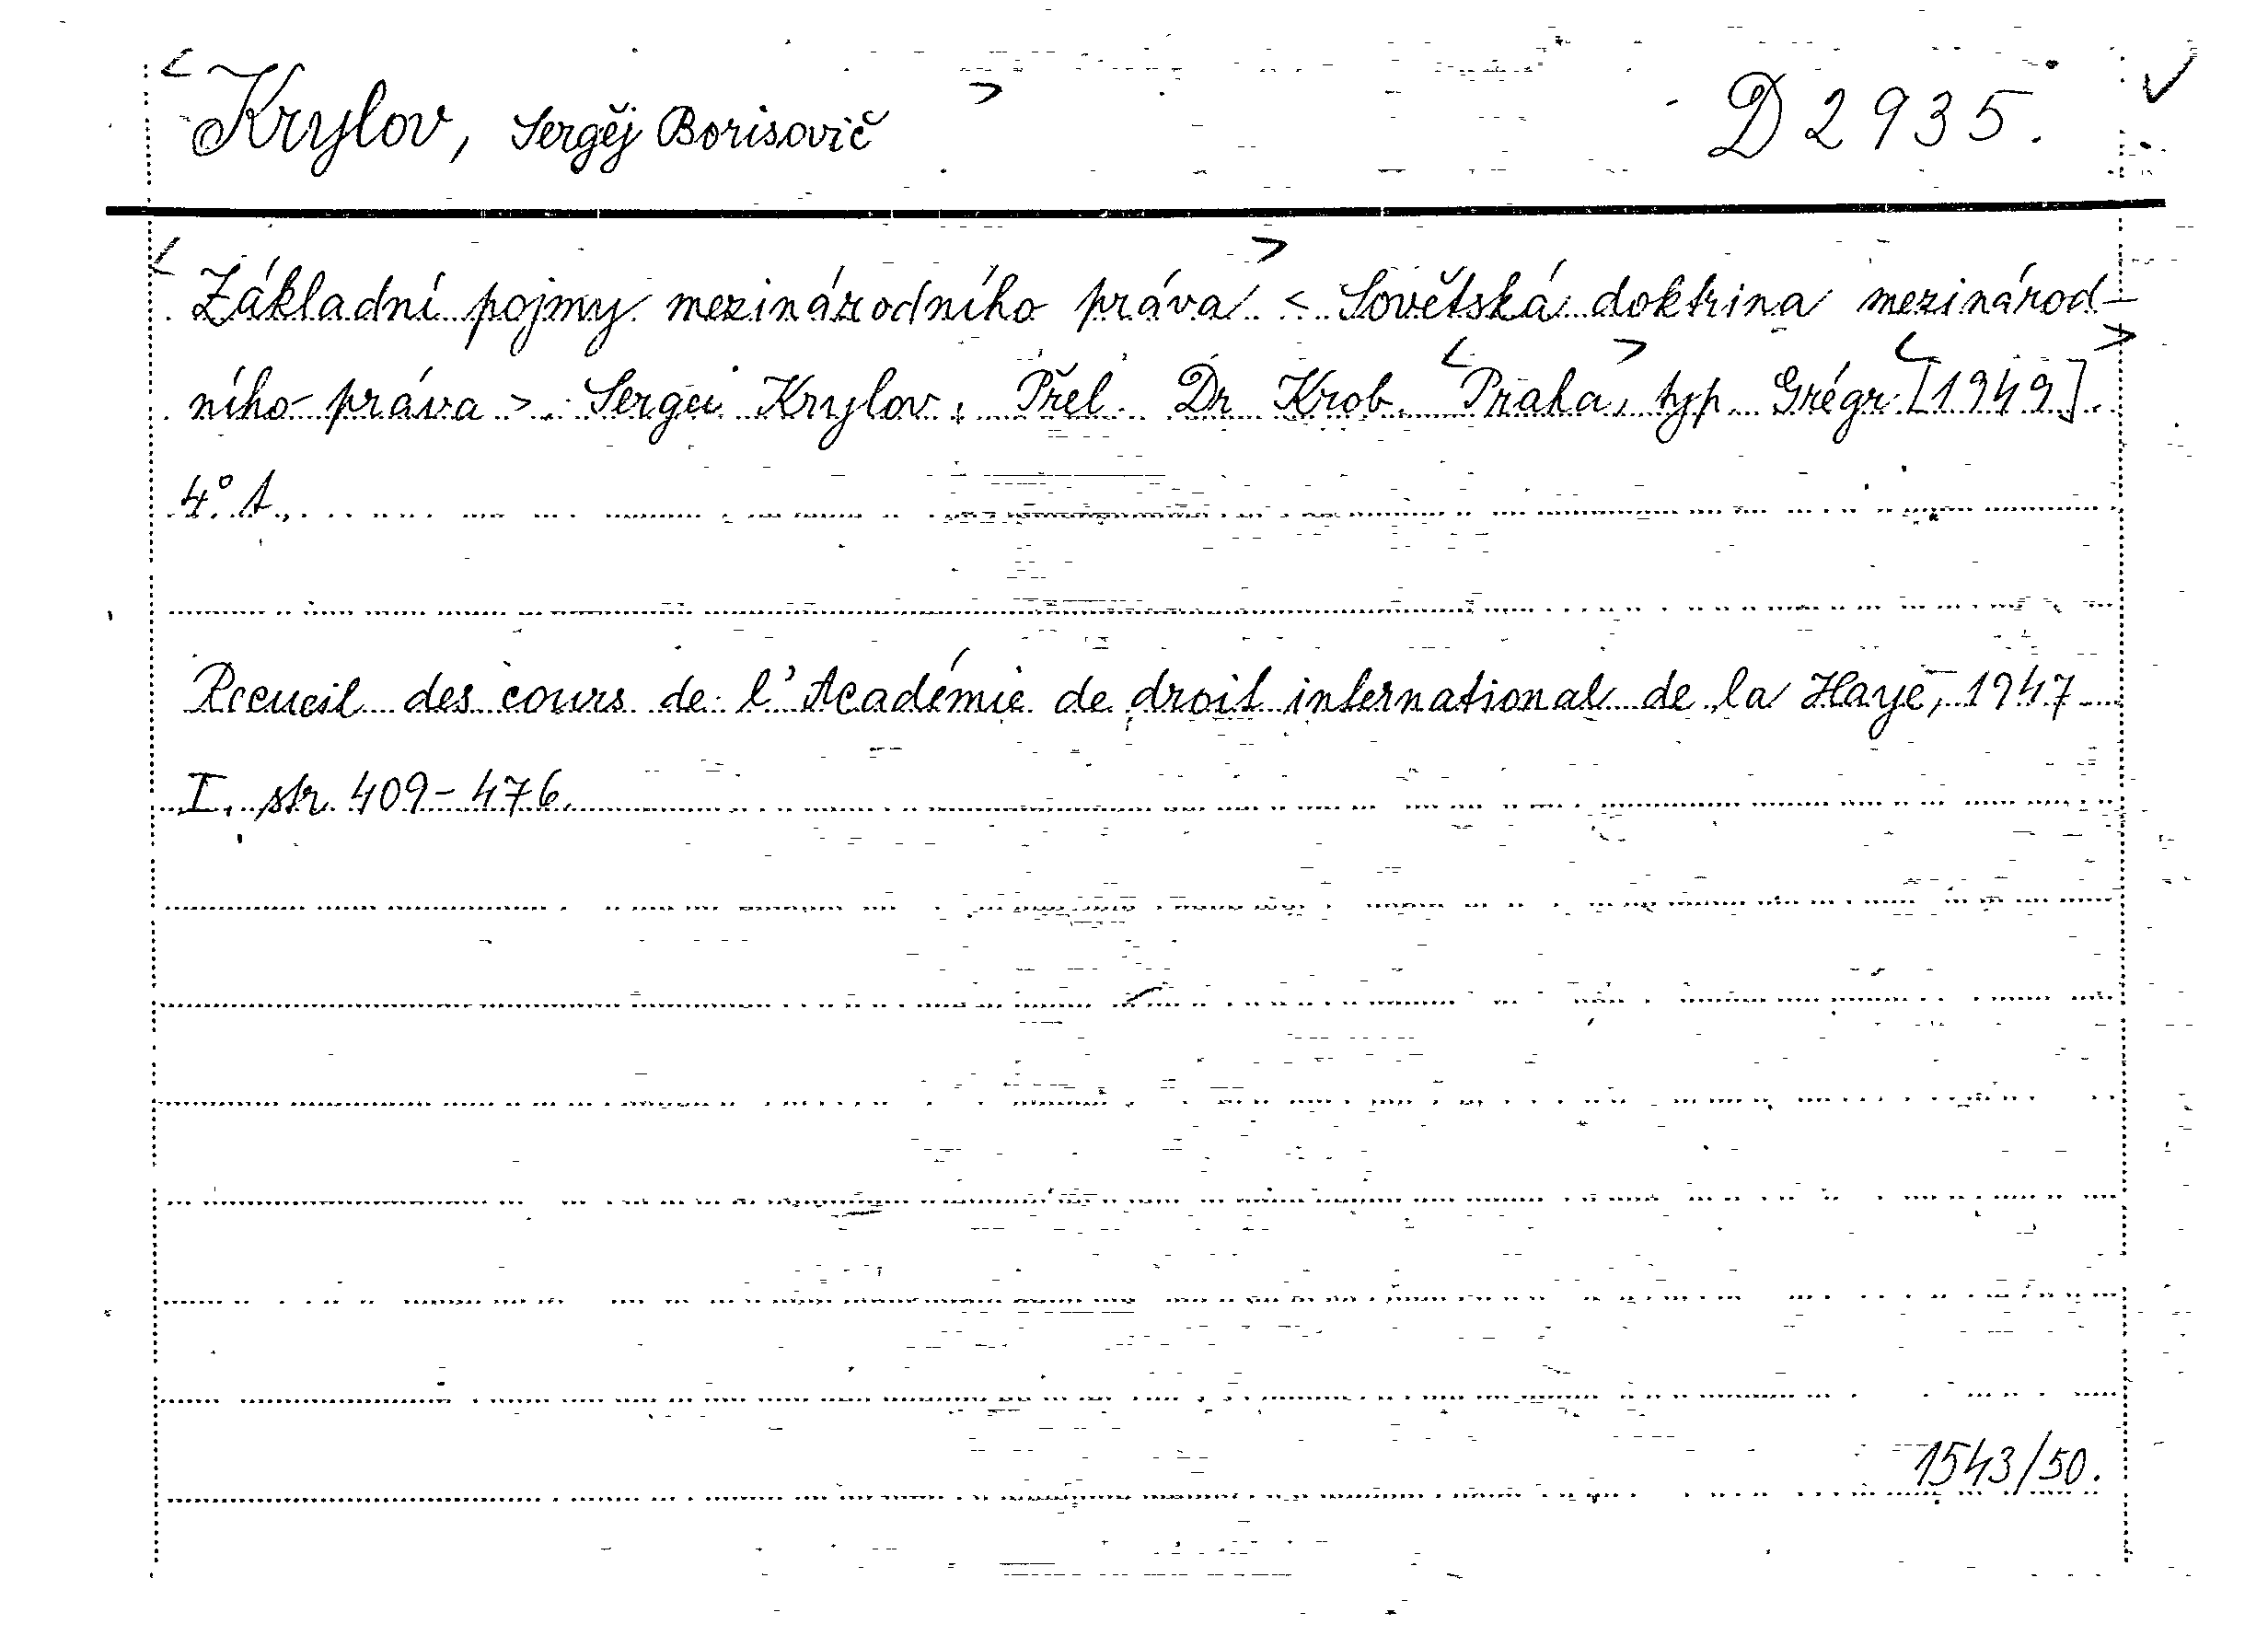 Krylov, Sergěj Borisovič D 2935.
Základní pojmy mezinárodního práva < Sovětská doktrina mezinárod-
ního práva >. Sergei Krylov. Přel. Dr Krob. Praha, typ. Grégr [1949].
4°.
Recueil des cours de l'Académie de droit international de la Haye, 1947
I. str. 409-476.
1543/50.